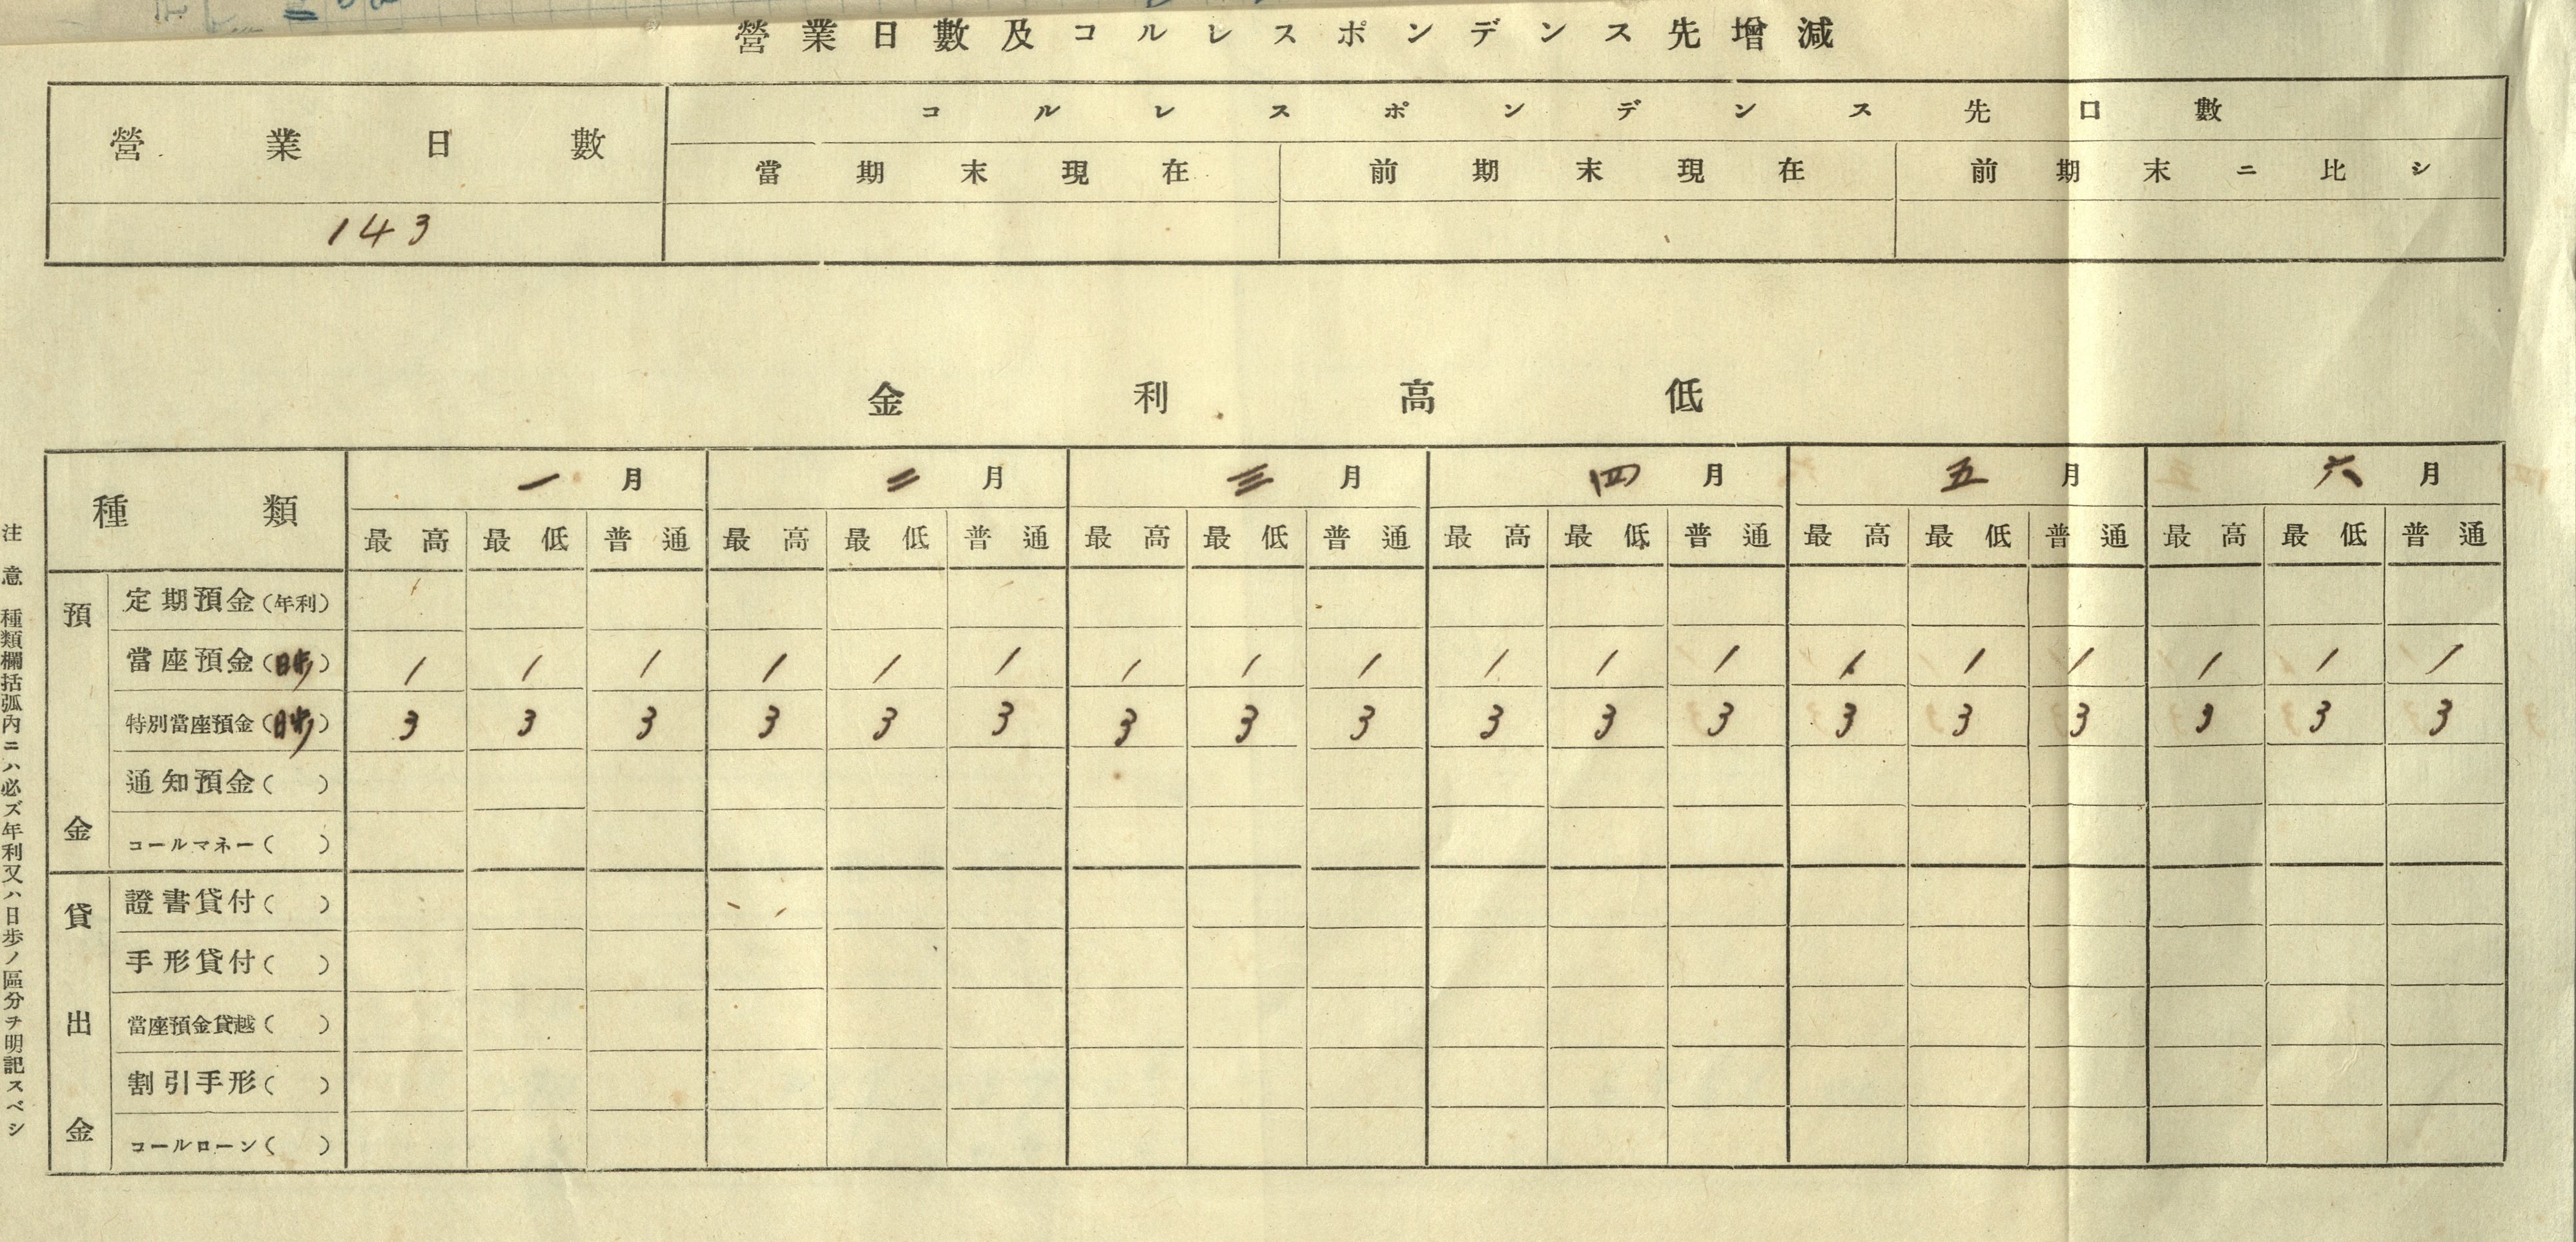 營業日數及コルレスポンデンス先增減
營業日數 コルレスポンデンス先口數
當期末現在 前期末現在 前期末ニ比シ
143
金利高低
種類 一月 二月 三月 四月 五月 六月
最高 最低 普通 最高 最低 普通 最高 最低 普通 最高 最低 普通 最高 最低 普通 最高 最低 普通
預金
定期預金(年利)
當座預金(日歩) 1 1 1 1 1 1 1 1 1 1 1 1 1 1 1 1 1 1
特別當座預金(日歩) 3 3 3 3 3 3 3 3 3 3 3 3 3 3 3 3 3 3
通知預金( )
コールマネー( )
貸出金
證書貸付( )
手形貸付( )
當座預金貸越( )
割引手形( )
コールローン( )
注意 種類欄括弧內ニハ必ズ年利又ハ日歩ノ區分ヲ明記スベシ